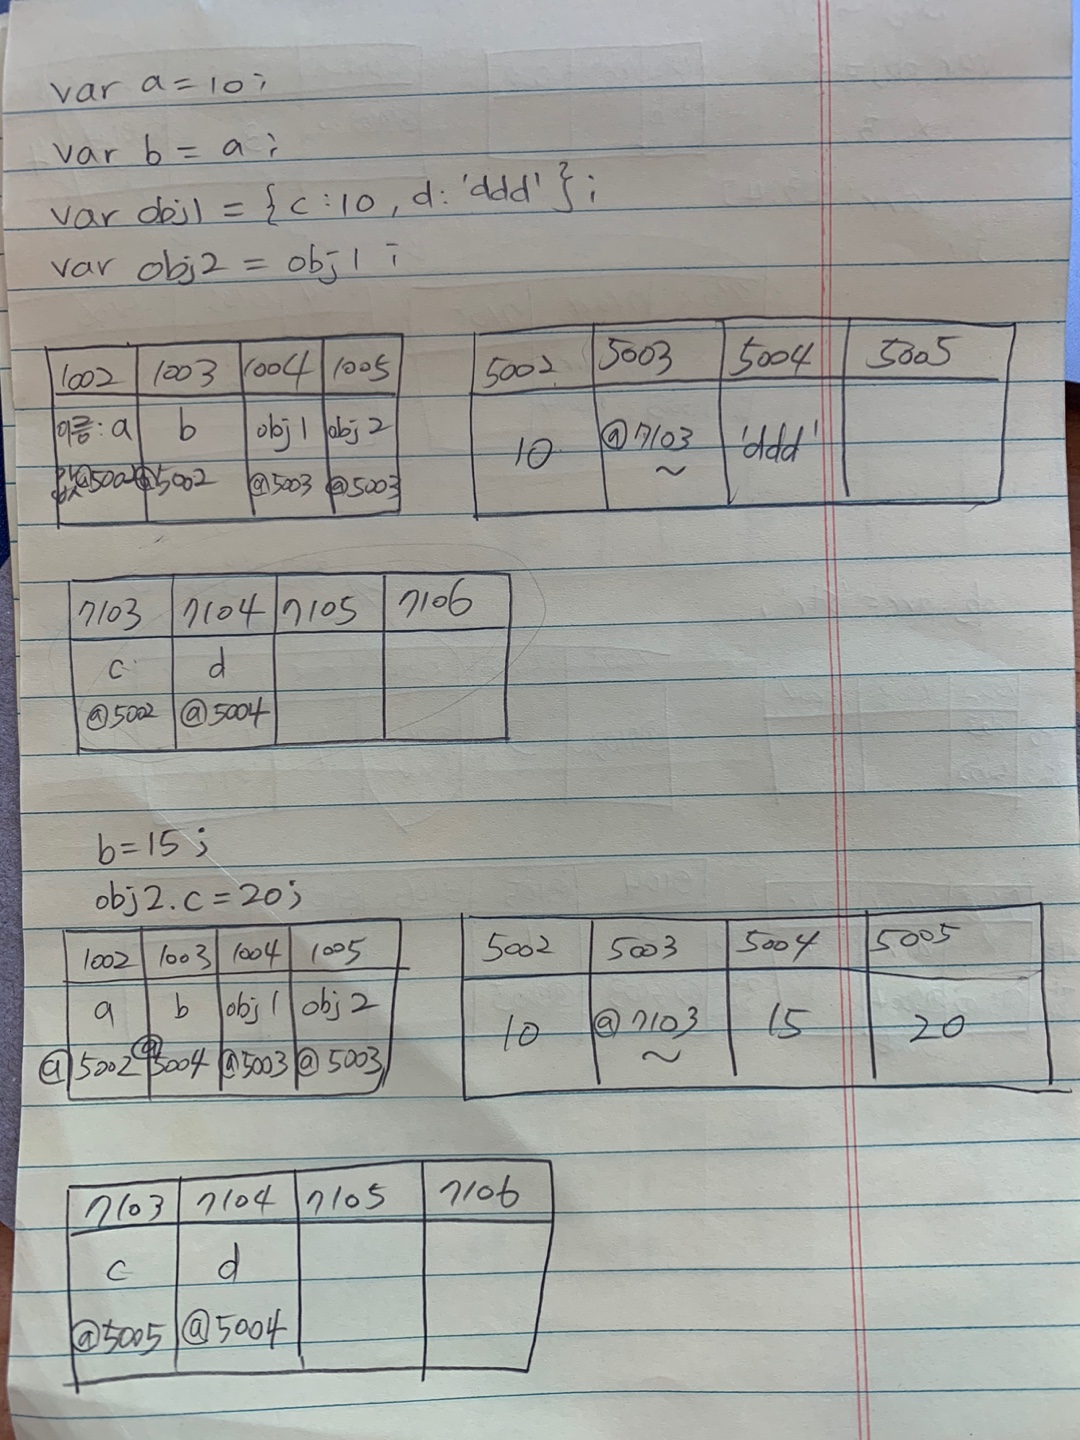 var a = 10;
var b = a;
var obj1 = { c : 10, d : 'ddd' };
var obj2 = obj1;
1002 1003 1004 1005
이름: a b obj1 obj2
값: @5002 @5002 @5003 @5003
5002 5003 5004 5005
10 @7103 ~ 'ddd'
7103 7104 7105 7106
c d
@5002 @5004
b = 15;
obj2.c = 20;
1002 1003 1004 1005
a b obj1 obj2
@5002 @5004 @5003 @5003
5002 5003 5004 5005
10 @7103 ~ 15 20
7103 7104 7105 7106
c d
@5005 @5004